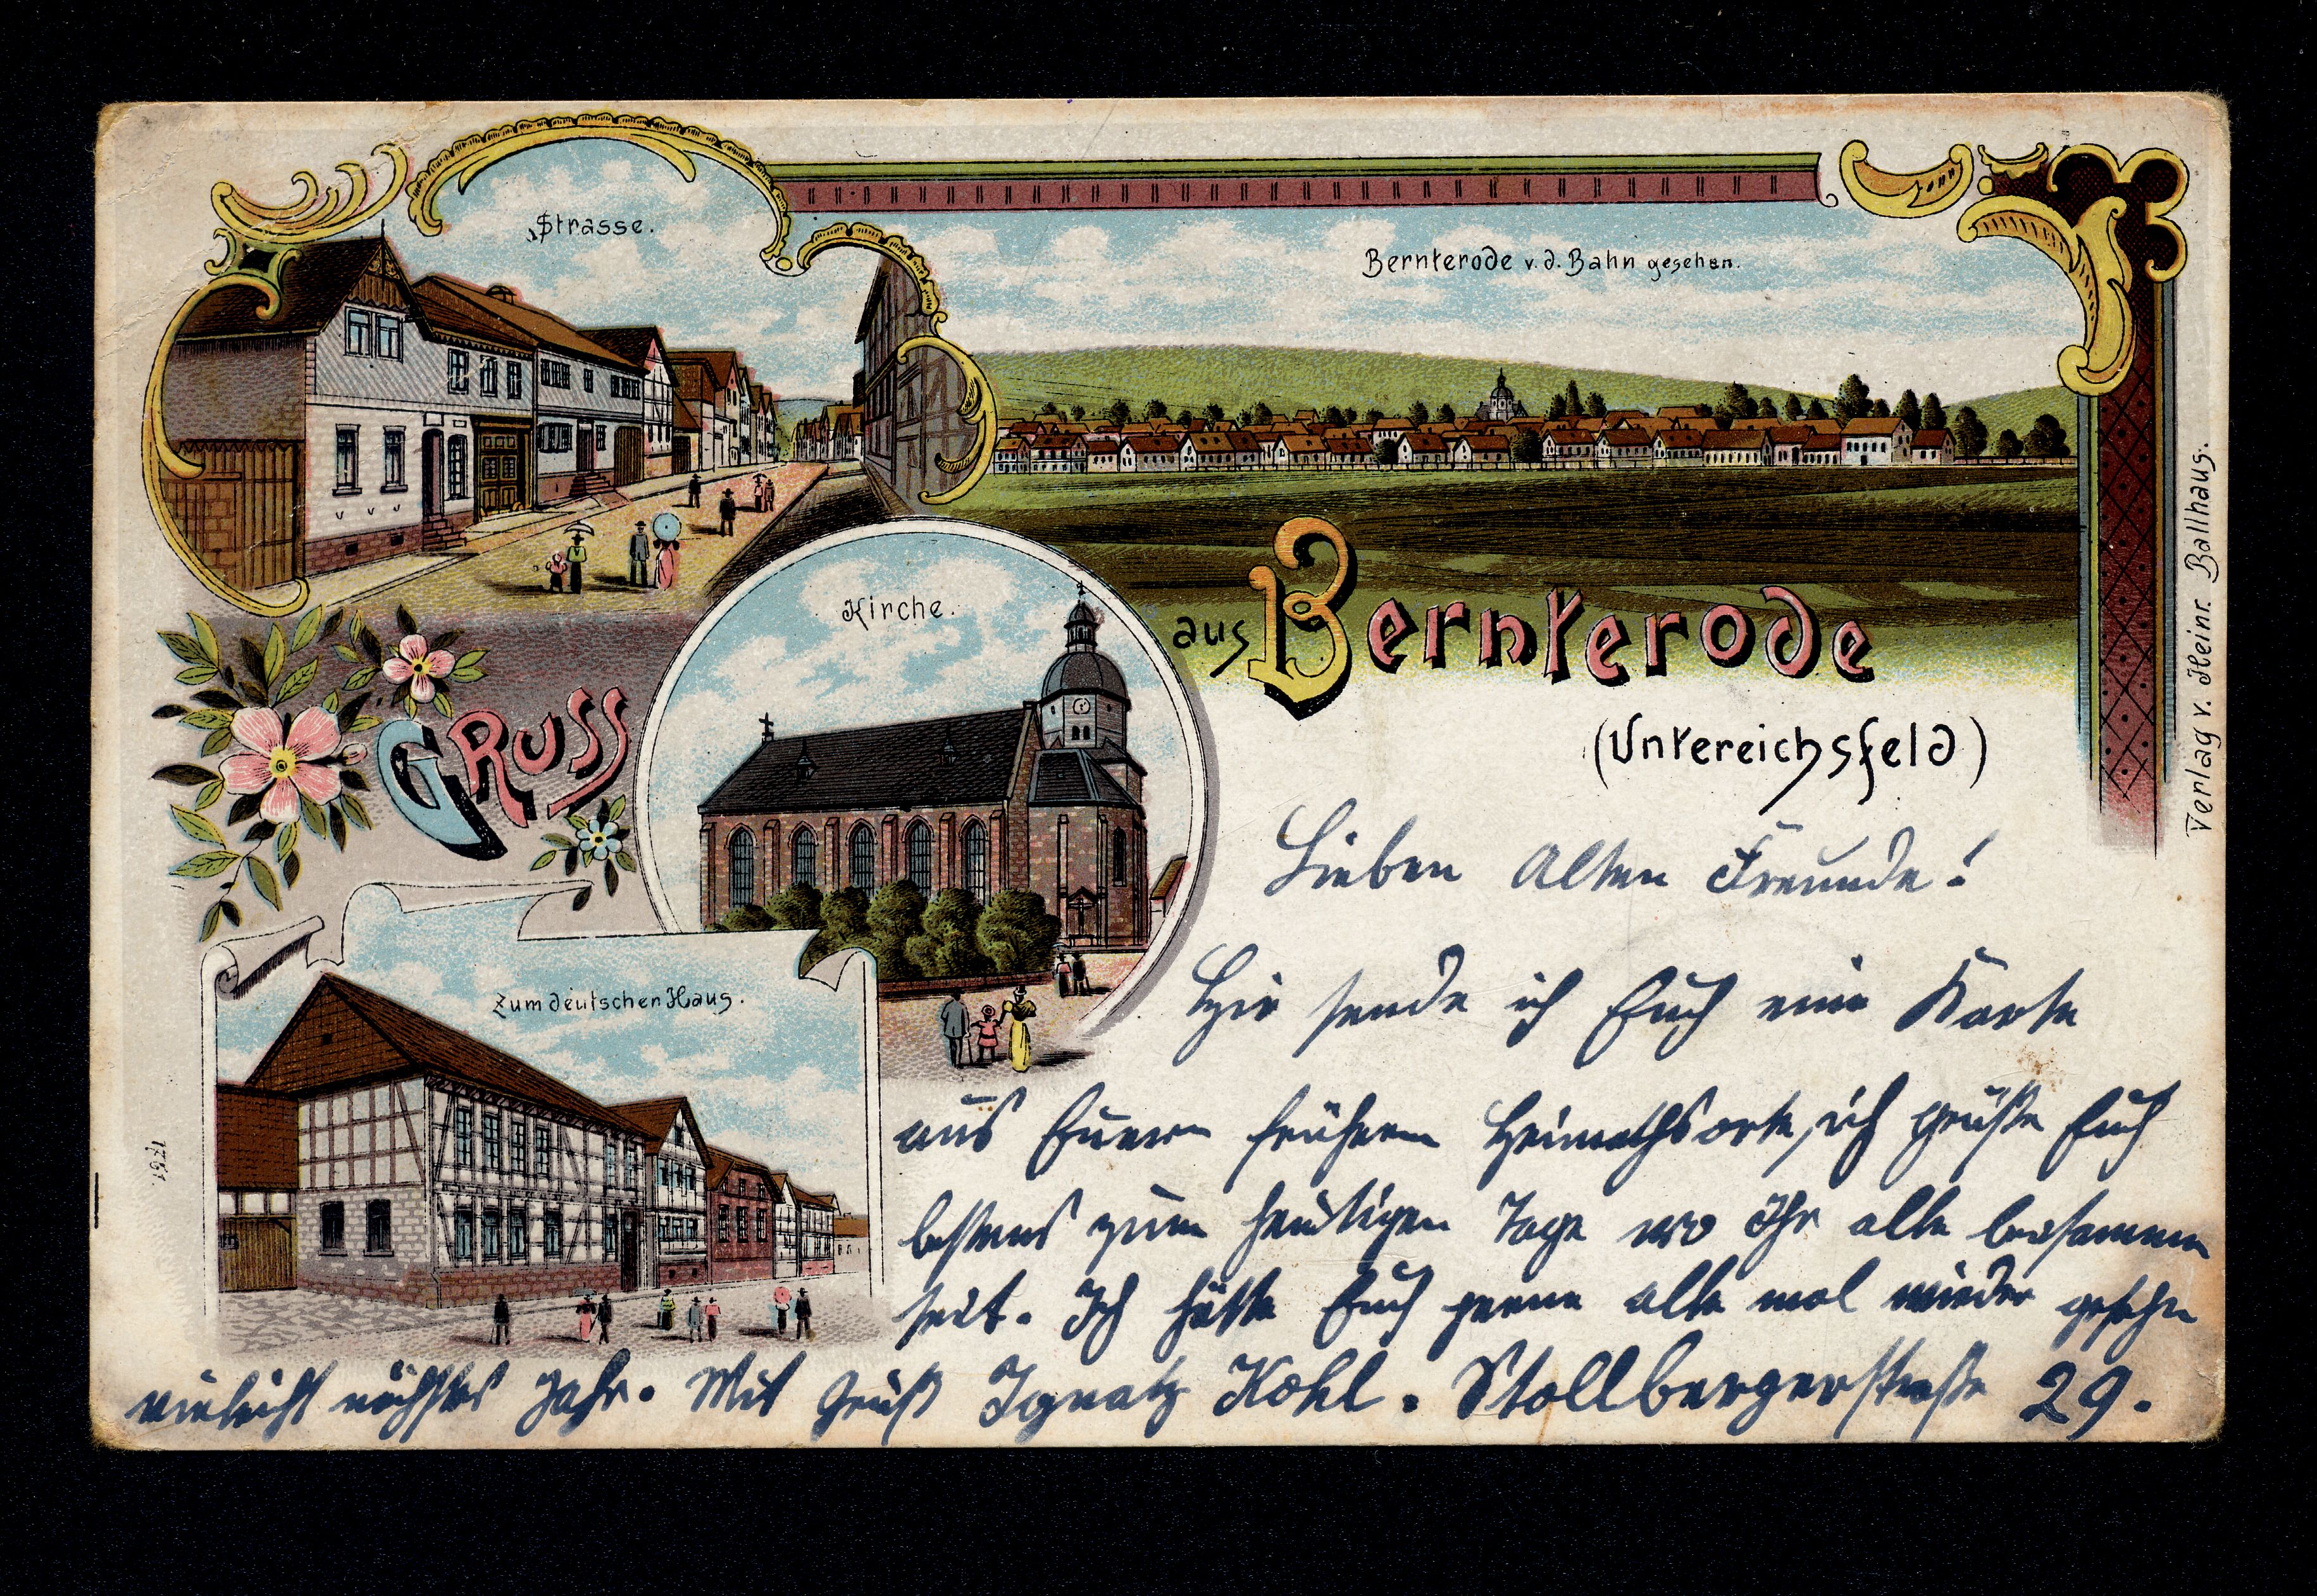 Strasse.
Bernterode v. d. Bahn gesehen.
Kirche.
Gruss
aus Bernterode
(Untereichsfeld)
Zum deutschen Haus.
Verlag v. Heinr. Ballhaus.
1751.
Lieben Alten Freunde!
Hir sende ich Euch eine Karte
aus Euern frühern Heimathsorte, ich grüße Euch
bestens zum heutigen Tage wo Ihr alle beisammen
seit. Ich hätte Euch gerne alle mal wieder gesehn
vieleicht nächstes Jahr. Mit Gruß Ignatz Kohl. Stollbergerstraße 29.